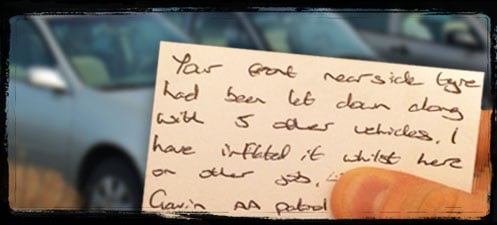 Your front nearside tyre
had been let down along
with 5 other vehicles. I
have inflated it whilst here
on other job.
Gavin AA patrol